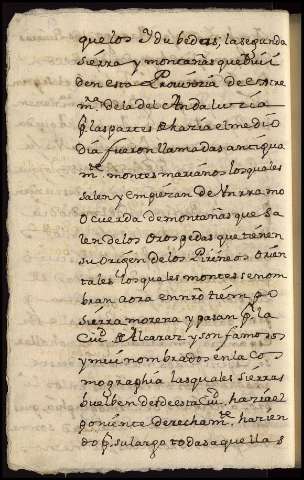 que los Ydubedas, la segunda
sierra y montañas que divi
den esta Provinçia de Estre
mª. de la del Andaluzia
p las partes de hazia el medio
dia fueron llamadas antigua
mte. montes marianos los quales
salen y empiezan de un rramo
o cuerda de montañas que sa
len de los orospedas que tienen
su origen de los Pirineos orien
tales los quales montes se nom
bran aora en nrõ tiempo
sierra morena y pasan p la
Ciu. de Alcaraz y son famosos
y mui nombrados en la Cos
mographia las quales sierras
buelben desde esta Ciu. hazia el
poniente derechamte. hazien
do p su largo todas aquellas